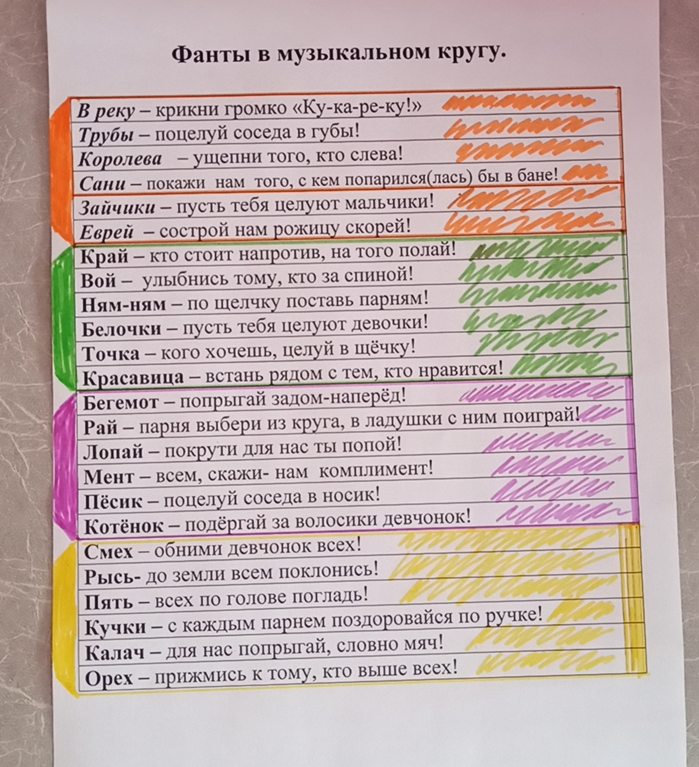 Фанты в музыкальном кругу.
В реку – крикни громко «Ку-ка-ре-ку!»
Трубы – поцелуй соседа в губы!
Королева – ущепни того, кто слева!
Сани – покажи нам того, с кем попарился(лась) бы в бане!
Зайчики – пусть тебя целуют мальчики!
Еврей – сострой нам рожицу скорей!
Край – кто стоит напротив, на того полай!
Вой – улыбнись тому, кто за спиной!
Ням-ням – по щелчку поставь парням!
Белочки – пусть тебя целуют девочки!
Точка – кого хочешь, целуй в щёчку!
Красавица – встань рядом с тем, кто нравится!
Бегемот – попрыгай задом-наперёд!
Рай – парня выбери из круга, в ладушки с ним поиграй!
Лопай – покрути для нас ты попой!
Мент – всем, скажи- нам комплимент!
Пёсик – поцелуй соседа в носик!
Котёнок – подёргай за волосики девчонок!
Смех – обними девчонок всех!
Рысь- до земли всем поклонись!
Пять – всех по голове погладь!
Кучки – с каждым парнем поздоровайся по ручке!
Калач – для нас попрыгай, словно мяч!
Орех – прижмись к тому, кто выше всех!